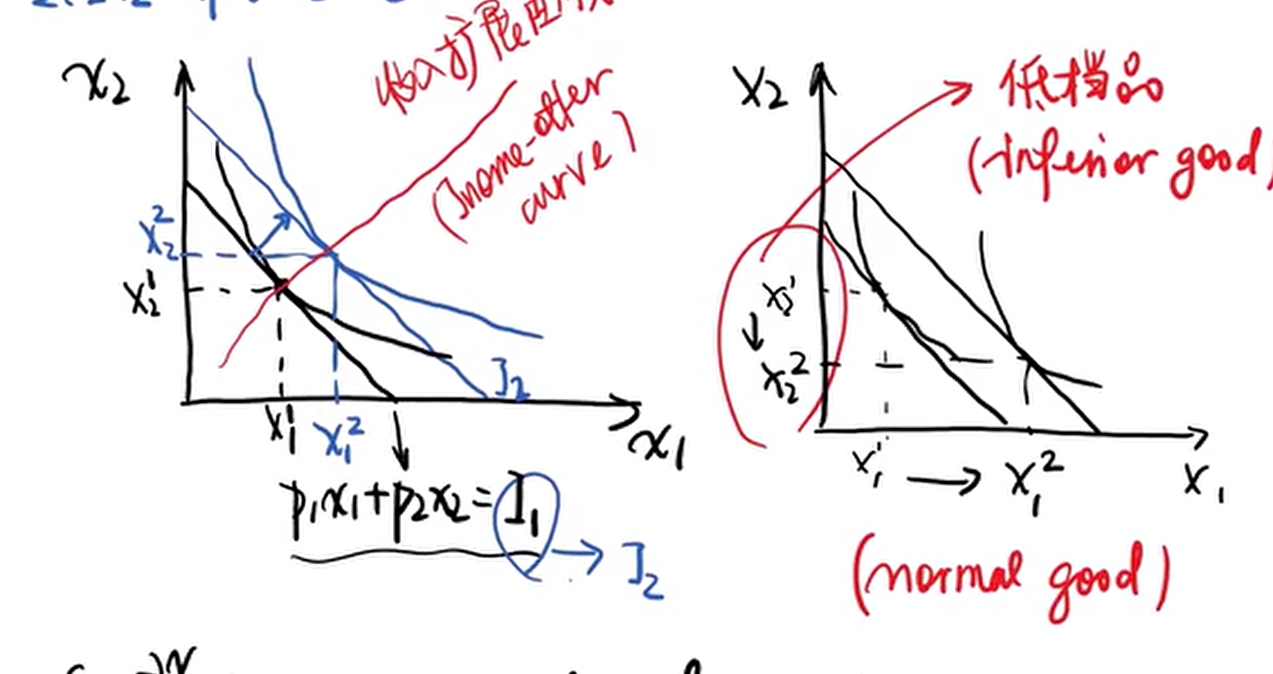 x₂
收入扩展曲线
(Inome-offer
curve)
x₂²
x₂¹
I₂
x₁¹
x₁²
x₁
p₁x₁+p₂x₂=I₁
→ I₂
x₂
低档品
(inferior good)
x₂¹
↓
x₂²
x₁¹ → x₁²
x₁
(normal good)